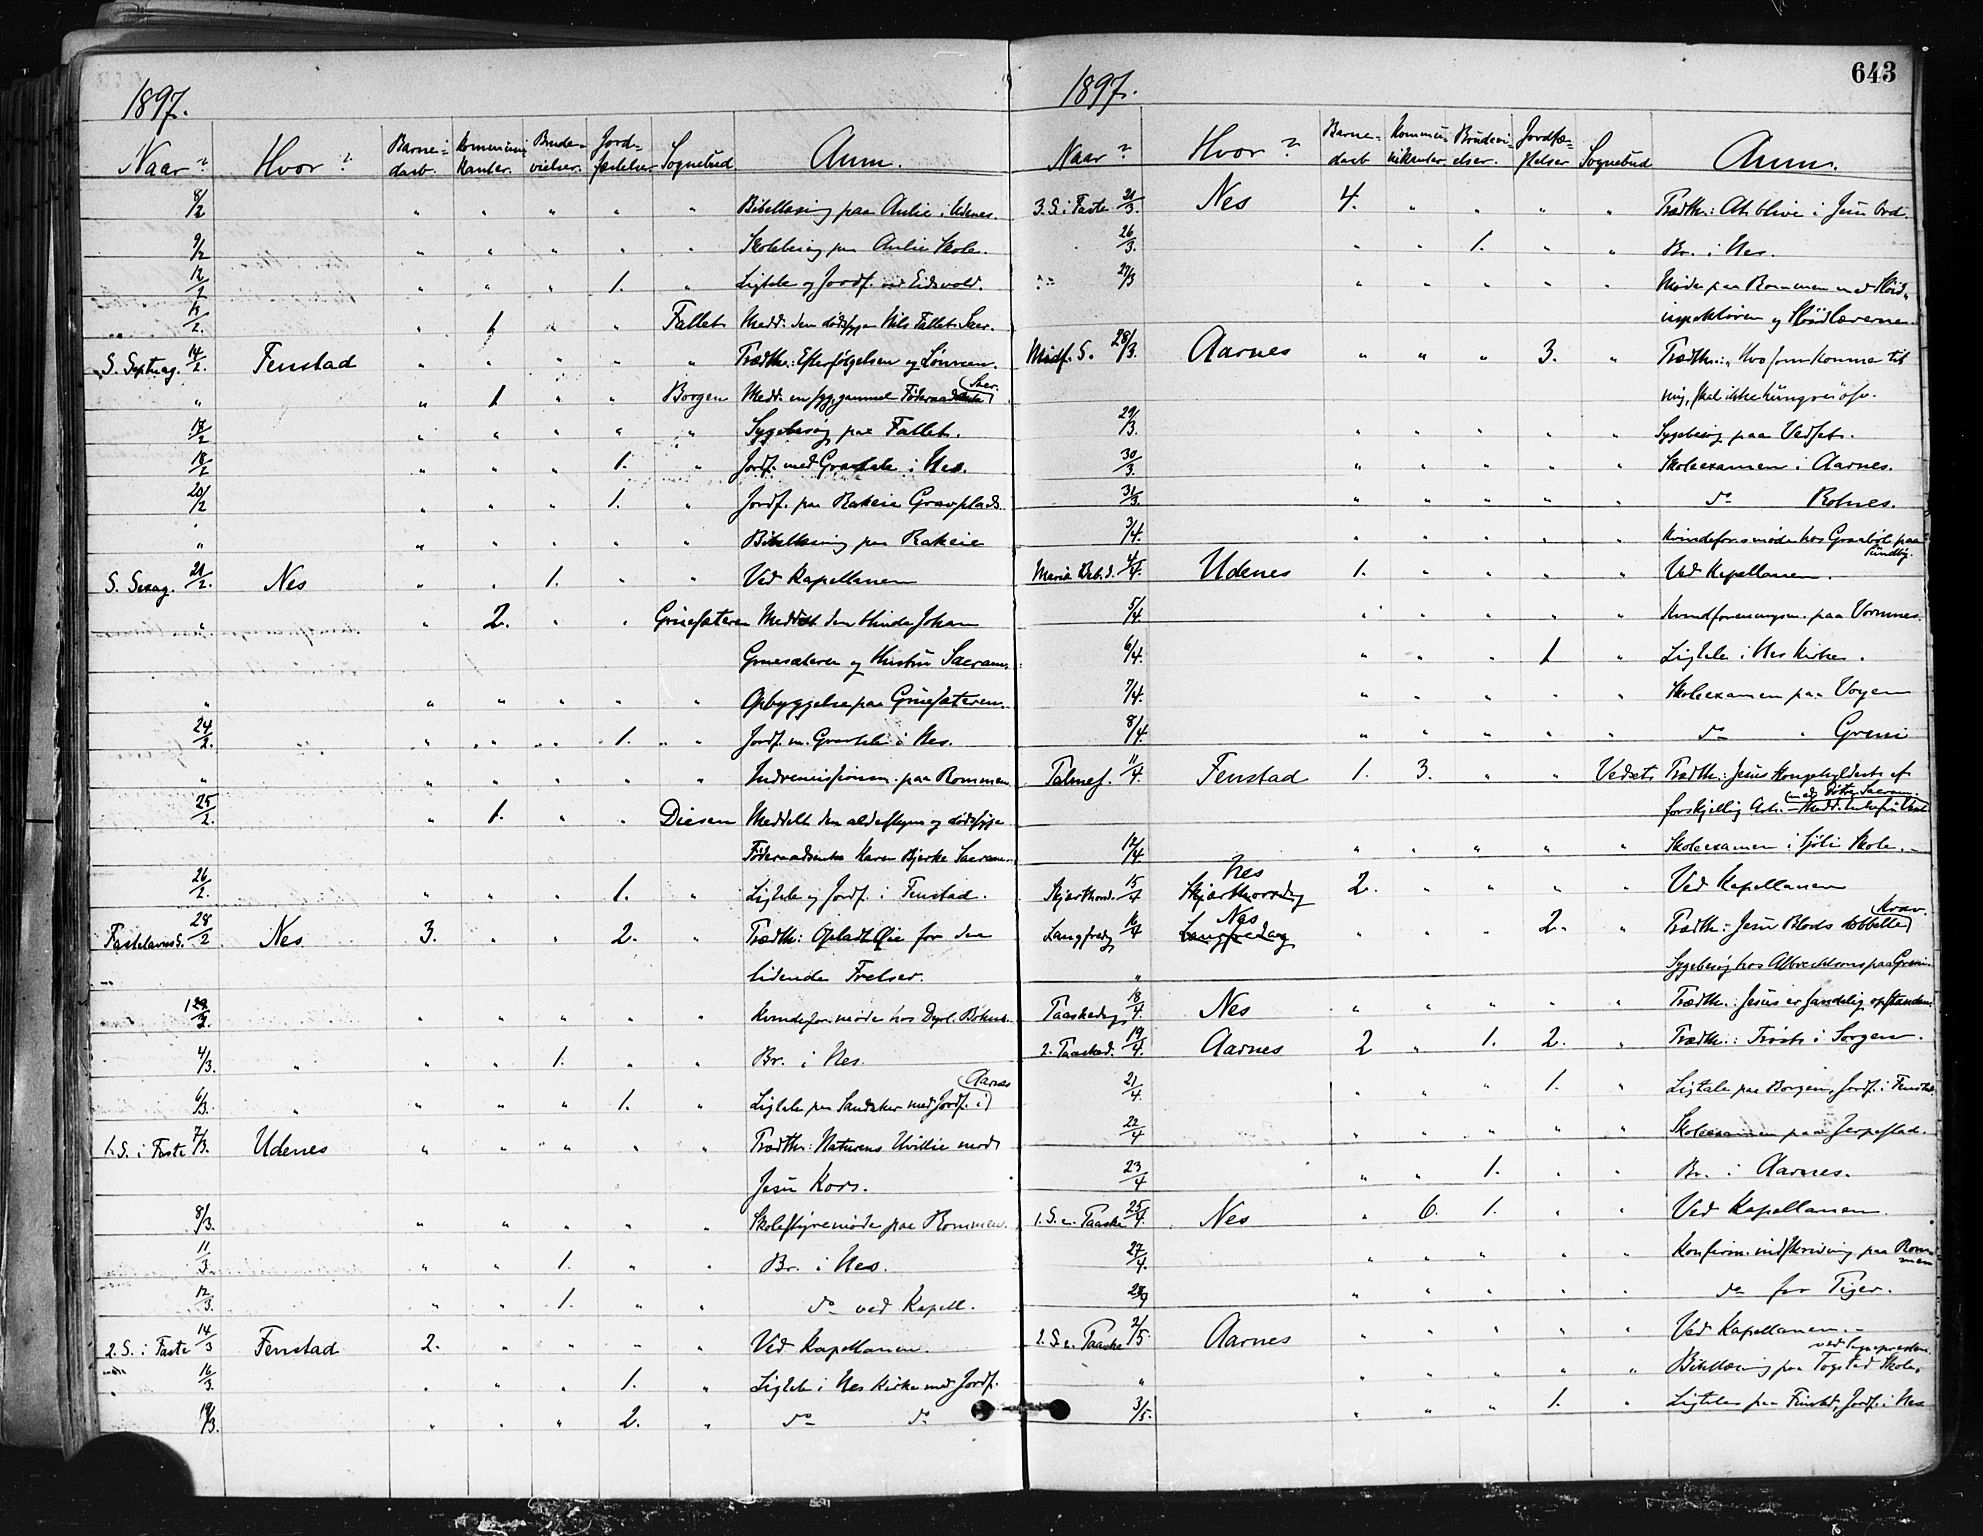 1897.
Naar? Hvor? Barne- daab. Kommuni- kanter. Brude- vielser. Jord- fæstelser Sognebud. Anm.
8/2 " " " " " Bibellæsning paa Aulie i Udenes.
9/2 " " " " " Skolebesøg paa Aulie Skole.
12/2 " " " 1. " Ligtale og Jordf. ved Eidsvold.
13/2. " 1 " " Fallet Medd. den dødssyge Nils Fallet Sacr.
S. Septuag. 14/2. Fenstad " " " " " Trædth.: Efterfølgelsen og Lønnen.
" " 1 " " Borgen Medd. en syg, gammel Føderaadsenke Sacr.
17/2 " " " " " Sygebesøg paa Fallet.
18/2 " " " 1. " Jordf. med Gravtale i Nes.
20/2 " " " 1. " Jordf. paa Rakeie Gravplads.
" " " " " " Bibellæsning paa Rakeie
S. Sexag. 21/2. Nes " " 1. " " Ved Kapellanen
" " 2. " " Gruesæteren Meddelt den blinde Johan
Gruesæteren og Hustru Sacram.
" " " " " " Opbyggelse paa Gruesæteren.
24/2. " " " 1. " Jordf. m. Gravtale i Nes.
" " " " " " Indremissionsm. paa Rommen
25/2. " 1. " " Diesen Meddelt den aldersstegne og dødssyge
Føderaadsenke Karen Bjerke Sacram.
26/2. " " " 1. " Ligtale og Jordf. i Fenstad.
Fastelavns S. 28/2 Nes 3. " " 2. " Trædth: Opladt Øie for den
lidende Frelser.
" " " " " Kvindefor.møde hos Dyrl. Bohus.
4/3. " " " 1. " " Br. i Nes.
6/3. " " " " 1. " Ligtale paa Sandaker med Jordf. i Aarnes
1. S. i Faste 7/3. Udenes " " " " " Trædth: Naturens Uvillie mod
Jesu Kors.
8/3. " " " " " Skolestyremøde paa Rommen.
11/3. " " 1. " " Br. i Nes.
12/3. " " 1. " " do ved Kapell.
2. S. i Faste 14/3 Fenstad 2. " " " " Ved Kapellanen.
" 16/3 " " " 1. " Ligtale i Nes Kirke med Jordf.
19/3. " " " 2. " do do
643
1897.
Naar? Hvor? Barne- daab Kommu- nikanter. Brudevi- elser. Jordfæ- stelser Sognebud Anm.
3. S. i Faste 21/3. Nes 4. " " " " Trædth.: At blive i Jesu Ord.
26/3. " " 1. " " Br. i Nes.
27/3 " " " " " Møde paa Rommen med Sløid-
inspektøren og Sløidlærerne.
Midf. S. 28/3. Aarnes " " " 3. " Trædth.: Hvo som kommer til
mig, skal ikke hungre osv.
29/3. " " " " " Sygebesøg paa Vedset.
30/3. " " " " " Skoleexamen i Aarnes.
31/3. " " " " " do Rolnes.
3/4. " " " " " Kvindeforsmøde hos Graabøl paa Sundby.
Mariæ Beb. d. 4/4. Udenes 1. " " " " Ved Kapellanen.
5/4. " " " " " Kvindforeningsm. paa Vormnes.
6/4. " " " 1 " Ligtale i Nes Kirke.
7/4. " " " " " Skoleexamen paa Vogen
8/4. " " " " " do " Greni
Palmes. 11/4. Fenstad 1. 3. " " Vedset Trædth.: Jesus Kongehyldest af
forskjellig Art.
12/4 " " " " " Skoleexamen i Sjøli Skole.
Skjærthord. 15/4 Nes Skjærthorsdag 2. " " " " Ved Kapellanen
Langfredg 16/4 Nes Langfredag " " " 2. " Trædth.: Jesu Blods dobbelte Krav.
" Sygebesøg hos Albrechtsons paa Greni.
Paaskedag 18/4. Nes " " " " " Trædth.: Jesus er sandelig opstanden.
2. Paasked. 19/4. Aarnes 2 " 1. 2. " Trædth.: Trøst i Sorgen.
21/4. " " " 1. " Ligtale paa Borgen, Jordf. i Fenstad.
22/4 " " " " " Skoleexamen paa Jerpestad.
23/4 " " 1. " " Br. i Aarnes.
1. S. e. Paaske 25/4. Nes " 6. 1. " " Ved Kapellanen.
27/4. " " " " " Konfirm. indskrivning paa Rom- men
28/4 " " " " " do for Piger.
2. S. e. Paaske 2/5. Aarnes " " " " " Ved Kapellanen.
" " " " " " Bibellæsning paa Togstad Skole, ved Sognepresten.
3/5. " " " 1. " Ligtale paa Finstad, Jordf. i Nes